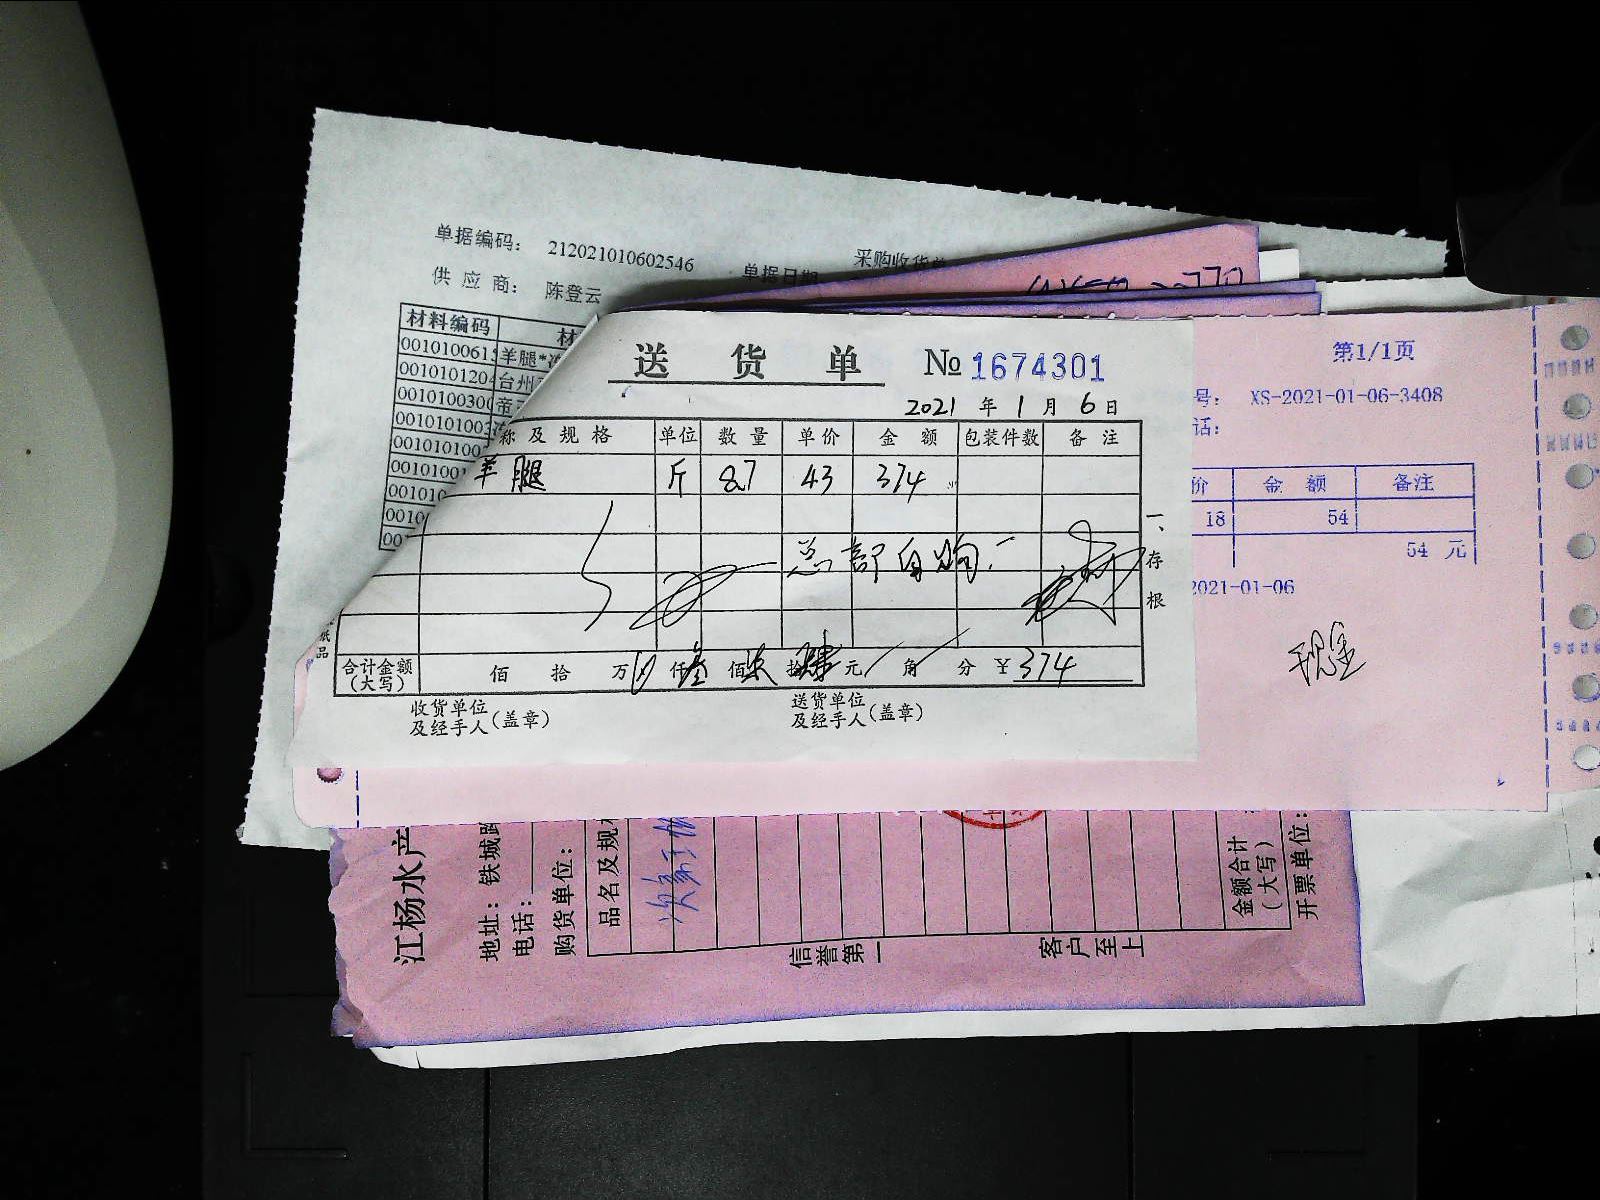 单据编码： 212021010602546
采购收货单
供 应 商： 陈登云
单据日期
材料编码 材
0010100615 羊腿*冻
0010101204 台州
0010100300 帝王
001010100
0010100
001010
0010
001
00
送 货 单 № 1674301
2021 年 1 月 6 日
称 及 规 格 单位 数 量 单价 金 额 包装件数 备 注
羊腿 斤 8.7 43 374
总部自购
一、存根
合计金额（大写） 佰 拾 万 仟 叁 佰 柒 拾 肆 元 角 分 ￥374
收货单位及经手人（盖章） 送货单位及经手人（盖章）
第1/1页
号： XS-2021-01-06-3408
话：
价 金 额 备注
18 54
54 元
2021-01-06
现金
江杨水产
地址：铁城路
电话：
购货单位：
品名及规
信誉第一 客户至上
金额合计（大写）
开票单位：